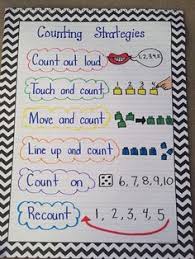 Counting Strategies
Count out loud 1,2,3,4
Touch and count 1 2 3 4
Move and count
Line up and count
Count on 6, 7, 8, 9, 10
Recount 1, 2, 3, 4, 5